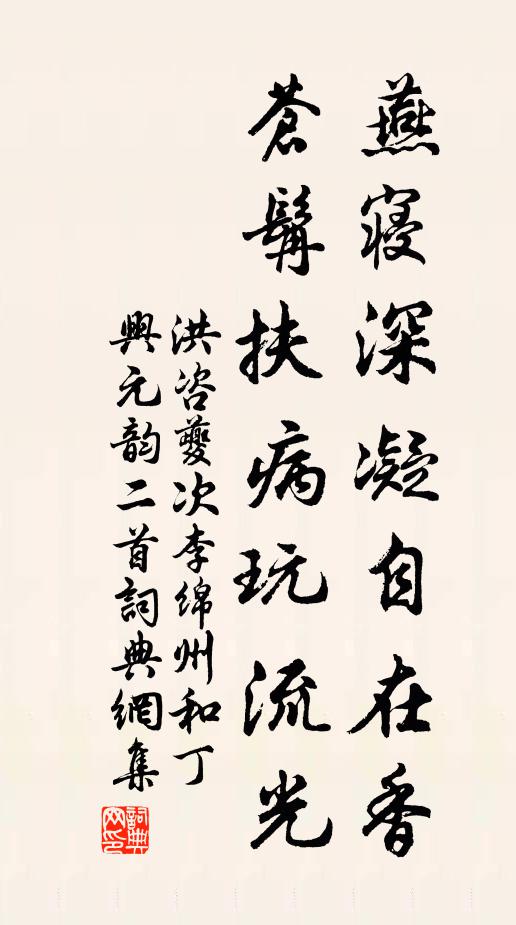 燕寝深凝自在香
蒼髯扶病玩流光
洪咨夔次李绵州和丁
興元韵二首詞典網集
詞典
网印